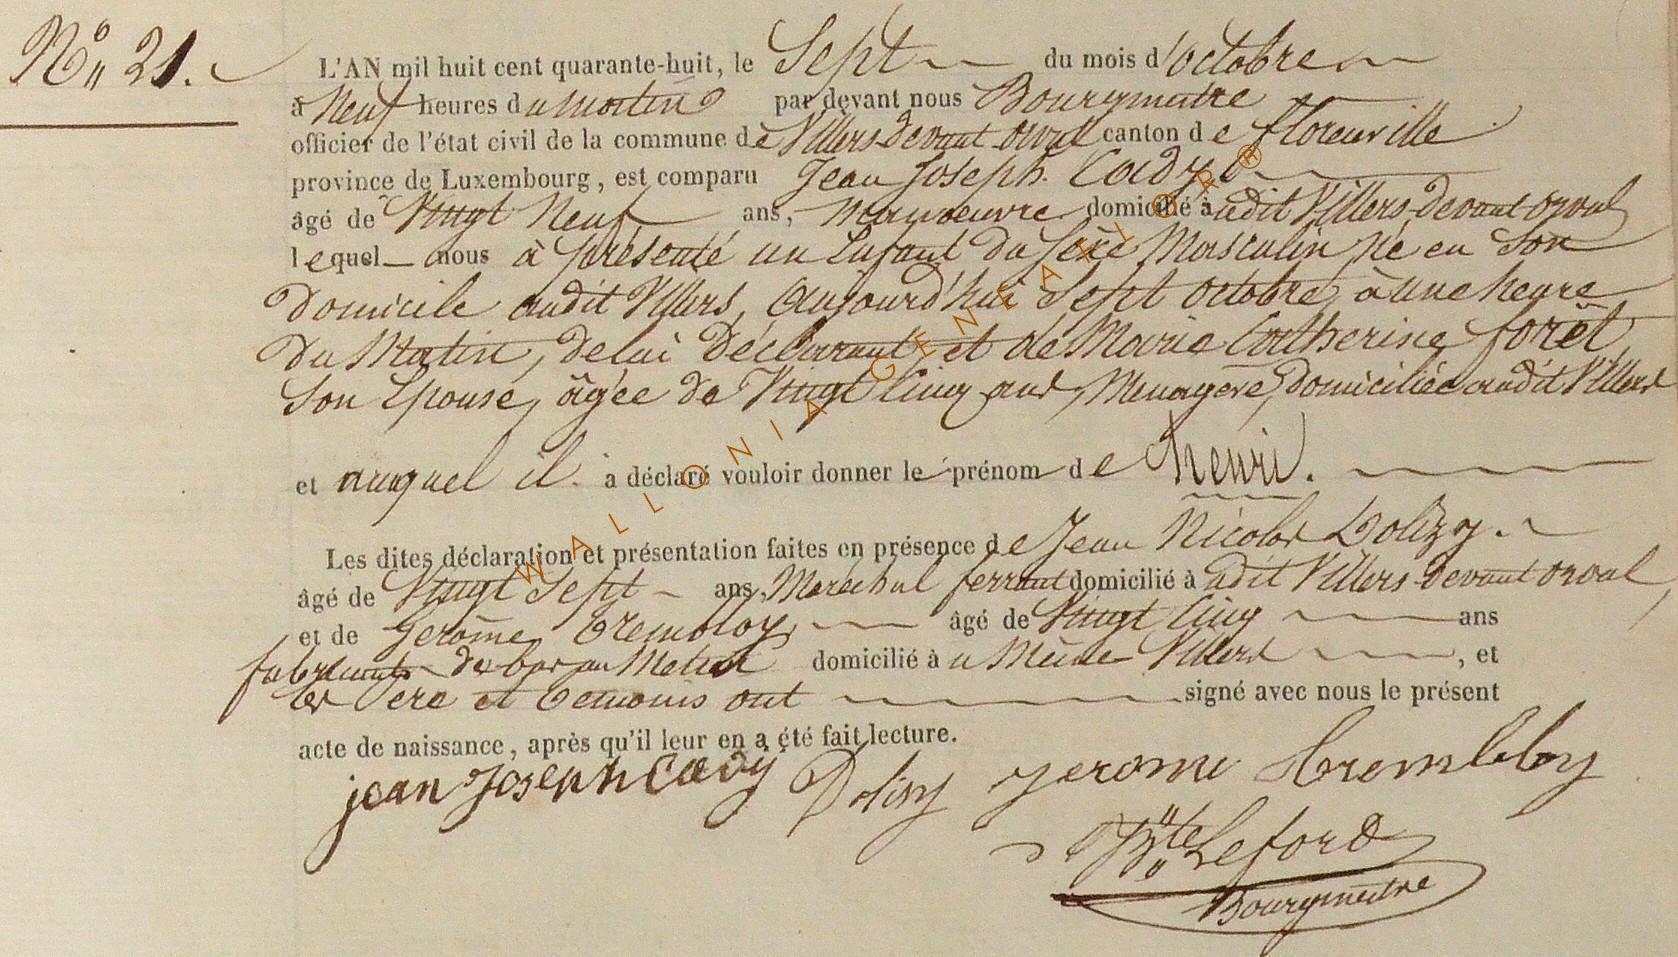 N° 21.
L'AN mil huit cent quarante-huit, le Sept du mois d'octobre
à Neuf heures du matin par devant nous Bourgmestre
officier de l'état civil de la commune de Villers devant orval canton de florenville
province de Luxembourg, est comparu Jean Joseph Cady
âgé de Vingt Neuf ans, manoeuvre domicilié à udit Villers devant orval
lequel nous à présenté un Enfant du sexe Masculin né en Son
Domicile audit Villers, aujourd'hui Sept octobre, à une heure
Du Matin, de lui Déclarant et de Marie Catherine forêt
Son Epouse, âgée de Vingt Cinq ans, Menagère, domiciliée audit Villers
et auquel il a déclaré vouloir donner le prénom de henri.
Les dites déclaration et présentation faites en présence de Jean Nicolas Dolizy.
âgé de Vingt Sept ans, Maréchal ferrant domicilié à udit Villers devant orval,
et de Jerôme Trembloy, âgé de Vingt Cinq ans
fabricant de bas au Metier domicilié à u Même Villers, et
les Père et Temoins ont signé avec nous le présent
acte de naissance, après qu'il leur en a été fait lecture.
jean Joseph Cady Dolizy jerome Trembloy
Bte Leford
Bourgmestre
WALLONIA GENEALOGIE ®